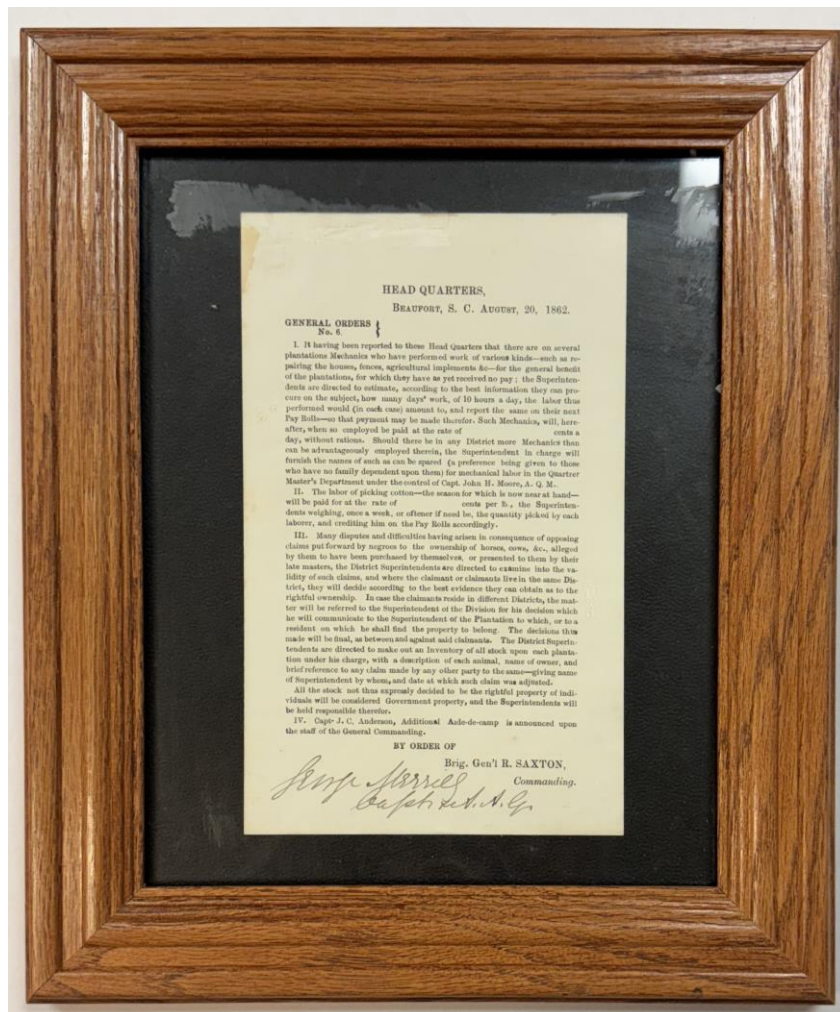 HEAD QUARTERS,
BEAUFORT, S. C. AUGUST, 20, 1862.
GENERAL ORDERS
No. 6.
I. It having been reported to these Head Quarters that there are on several
plantations Mechanics who have performed work of various kinds—such as re-
pairing the houses, fences, agricultural implements &c—for the general benefit
of the plantations, for which they have as yet received no pay; the Superinten-
dents are directed to estimate, according to the best information they can pro-
cure on the subject, how many days' work, of 10 hours a day, the labor thus
performed would (in each case) amount to, and report the same on their next
Pay Rolls—so that payment may be made therefor. Such Mechanics, will, here-
after, when so employed be paid at the rate of cents a
day, without rations. Should there be in any District more Mechanics than
can be advantageously employed therein, the Superintendent in charge will
furnish the names of such as can be spared (a preference being given to those
who have no family dependent upon them) for mechanical labor in the Quartrer
Master's Department under the control of Capt. John H. Moore, A. Q. M.
II. The labor of picking cotton—the season for which is now near at hand—
will be paid for at the rate of cents per lb., the Superinten-
dents weighing, once a week, or oftener if need be, the quantity picked by each
laborer, and crediting him on the Pay Rolls accordingly.
III. Many disputes and difficulties having arisen in consequence of opposing
claims put forward by negroes to the ownership of horses, cows, &c., alleged
by them to have been purchased by themselves, or presented to them by their
late masters, the District Superintendents are directed to examine into the va-
lidity of such claims, and where the claimant or claimants live in the same Dis-
trict, they will decide according to the best evidence they can obtain as to the
rightful ownership. In case the claimants reside in different Districts, the mat-
ter will be referred to the Superintendent of the Division for his decision which
he will communicate to the Superintendent of the Plantation to which, or to a
resident on which he shall find the property to belong. The decisions thus
made will be final, as between and against said claimants. The District Superin-
tendents are directed to make out an Inventory of all stock upon each planta-
tion under his charge, with a description of each animal, name of owner, and
brief reference to any claim made by any other party to the same—giving name
of Superintendent by whom, and date at which such claim was adjusted.
All the stock not thus expressly decided to be the rightful property of indi-
viduals will be considered Government property, and the Superintendents will
be held responsible therefor.
IV. Capt- J. C. Anderson, Additional Aade-de-camp is announced upon
the staff of the General Commanding.
BY ORDER OF
Brig. Gen'l R. SAXTON,
Commanding.
George Merrill
Capt & A. A. G.